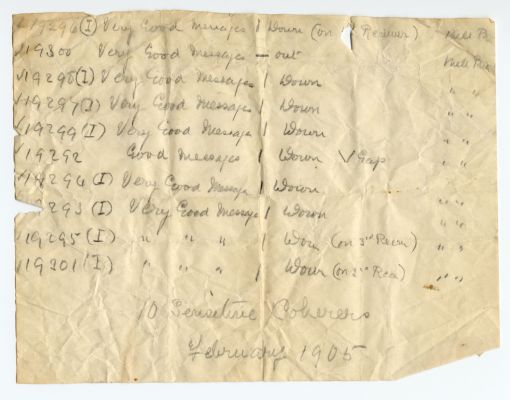 √19296 (I) Very Good messages | Down (on Receiver)
√19300 Very Good Messages — out
√19298 (I) Very Good Messages | Down " "
√19297 (I) Very Good Messages | Down " "
√19299 (I) Very Good Messages | Down " "
√19292 Good Messages | Down V Gap " "
√19294 (I) Very Good Messages | Down " "
293 (I) Very Good Messages | Down " "
√19295 (I) " " " | Down (on 3rd Recer) " "
√19301 (I) " " " | Down (on 2nd Recer) " "
10 Sensitive Coherers
February 1905